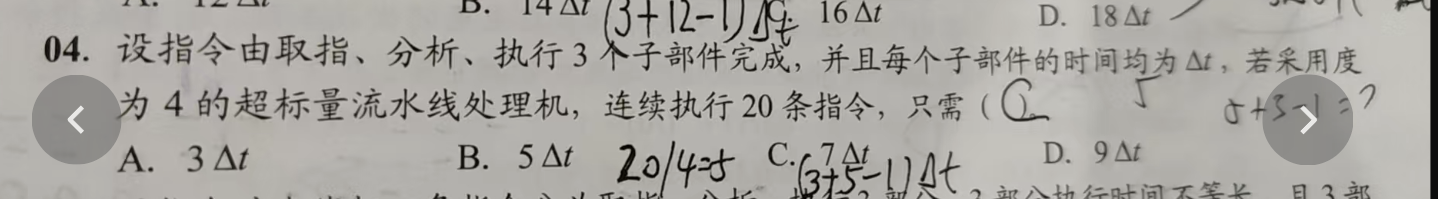 B. 14Δt (3+12-1)Δt 16Δt D. 18Δt
04. 设指令由取指、分析、执行 3 个子部件完成，并且每个子部件的时间均为 Δt，若采用度
为 4 的超标量流水线处理机，连续执行 20 条指令，只需（ 5 5+3-1=7
A. 3Δt B. 5Δt 20/4=5 C. 7Δt D. 9Δt
(3+5-1)Δt